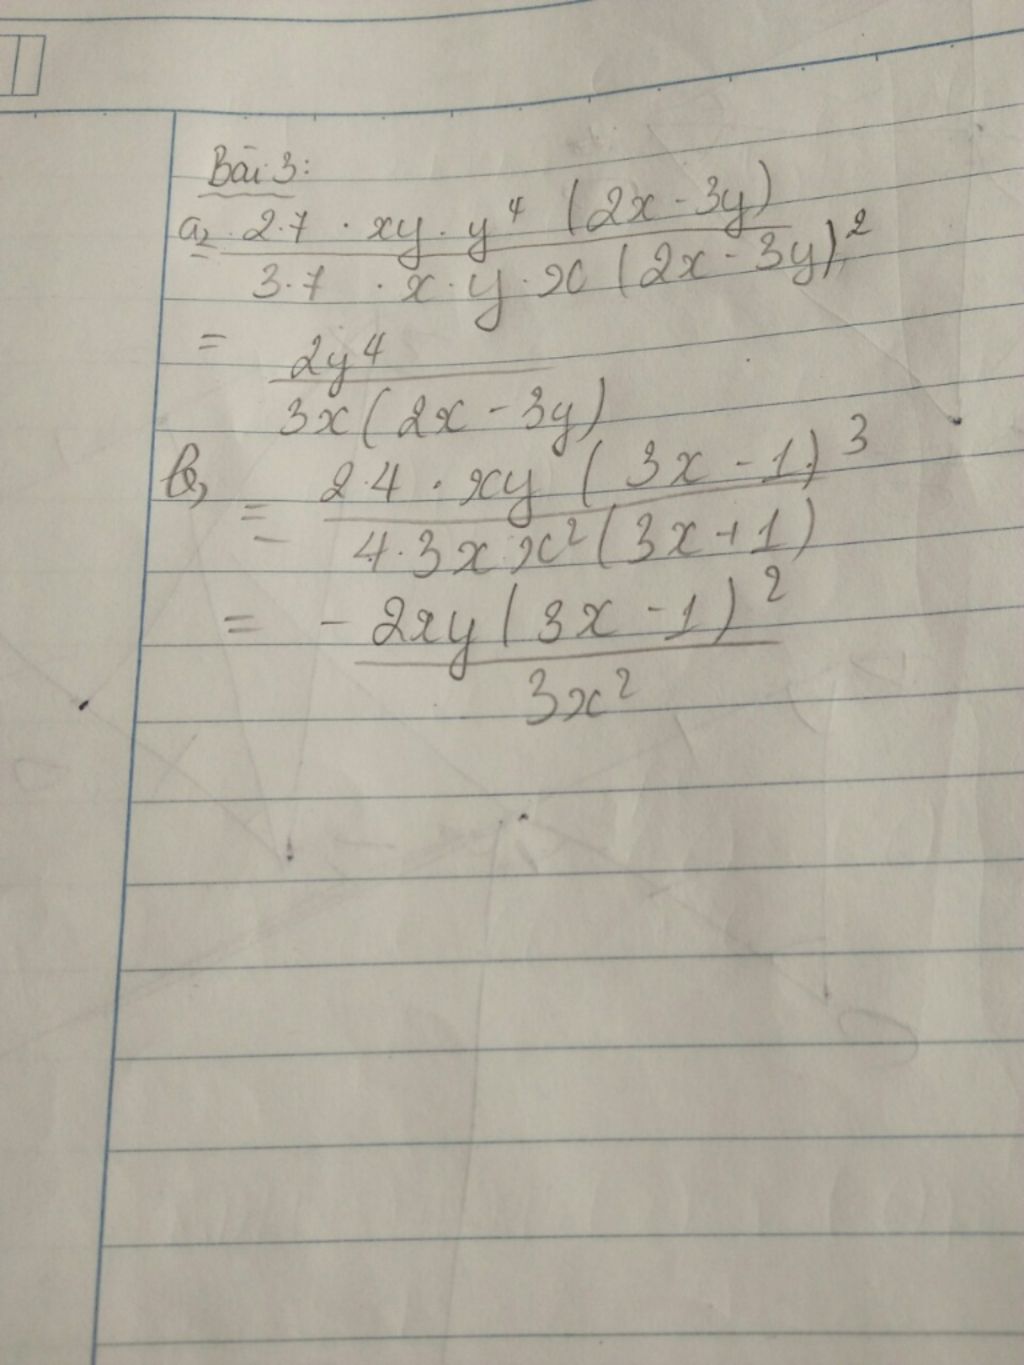 Bài 3:
a, = 2.7 . xy . y⁴ (2x - 3y)
3.7 . x . y . x (2x - 3y)²
= 2y⁴
3x (2x - 3y)
b, = 2.4 . xy (3x - 1)³
4.3x x² (3x + 1)
= - 2xy (3x - 1)²
3x²